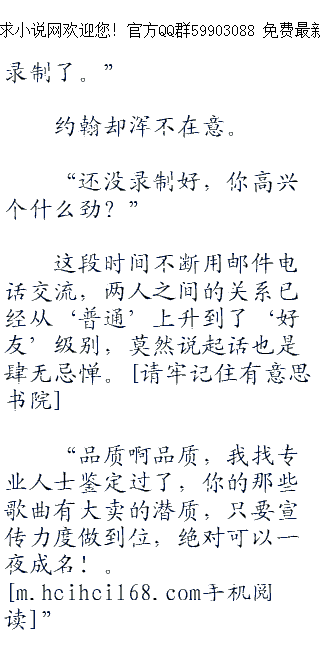 求小说网欢迎您！官方QQ群59903088 免费最新
录制了。”
约翰却浑不在意。
“还没录制好，你高兴
个什么劲？”
这段时间不断用邮件电
话交流，两人之间的关系已
经从‘普通’上升到了‘好
友’级别，莫然说起话也是
肆无忌惮。[请牢记住有意思
书院]
“品质啊品质，我找专
业人士鉴定过了，你的那些
歌曲有大卖的潜质，只要宣
传力度做到位，绝对可以一
夜成名！。
[m.hcihcil68.com手机阅
读]”